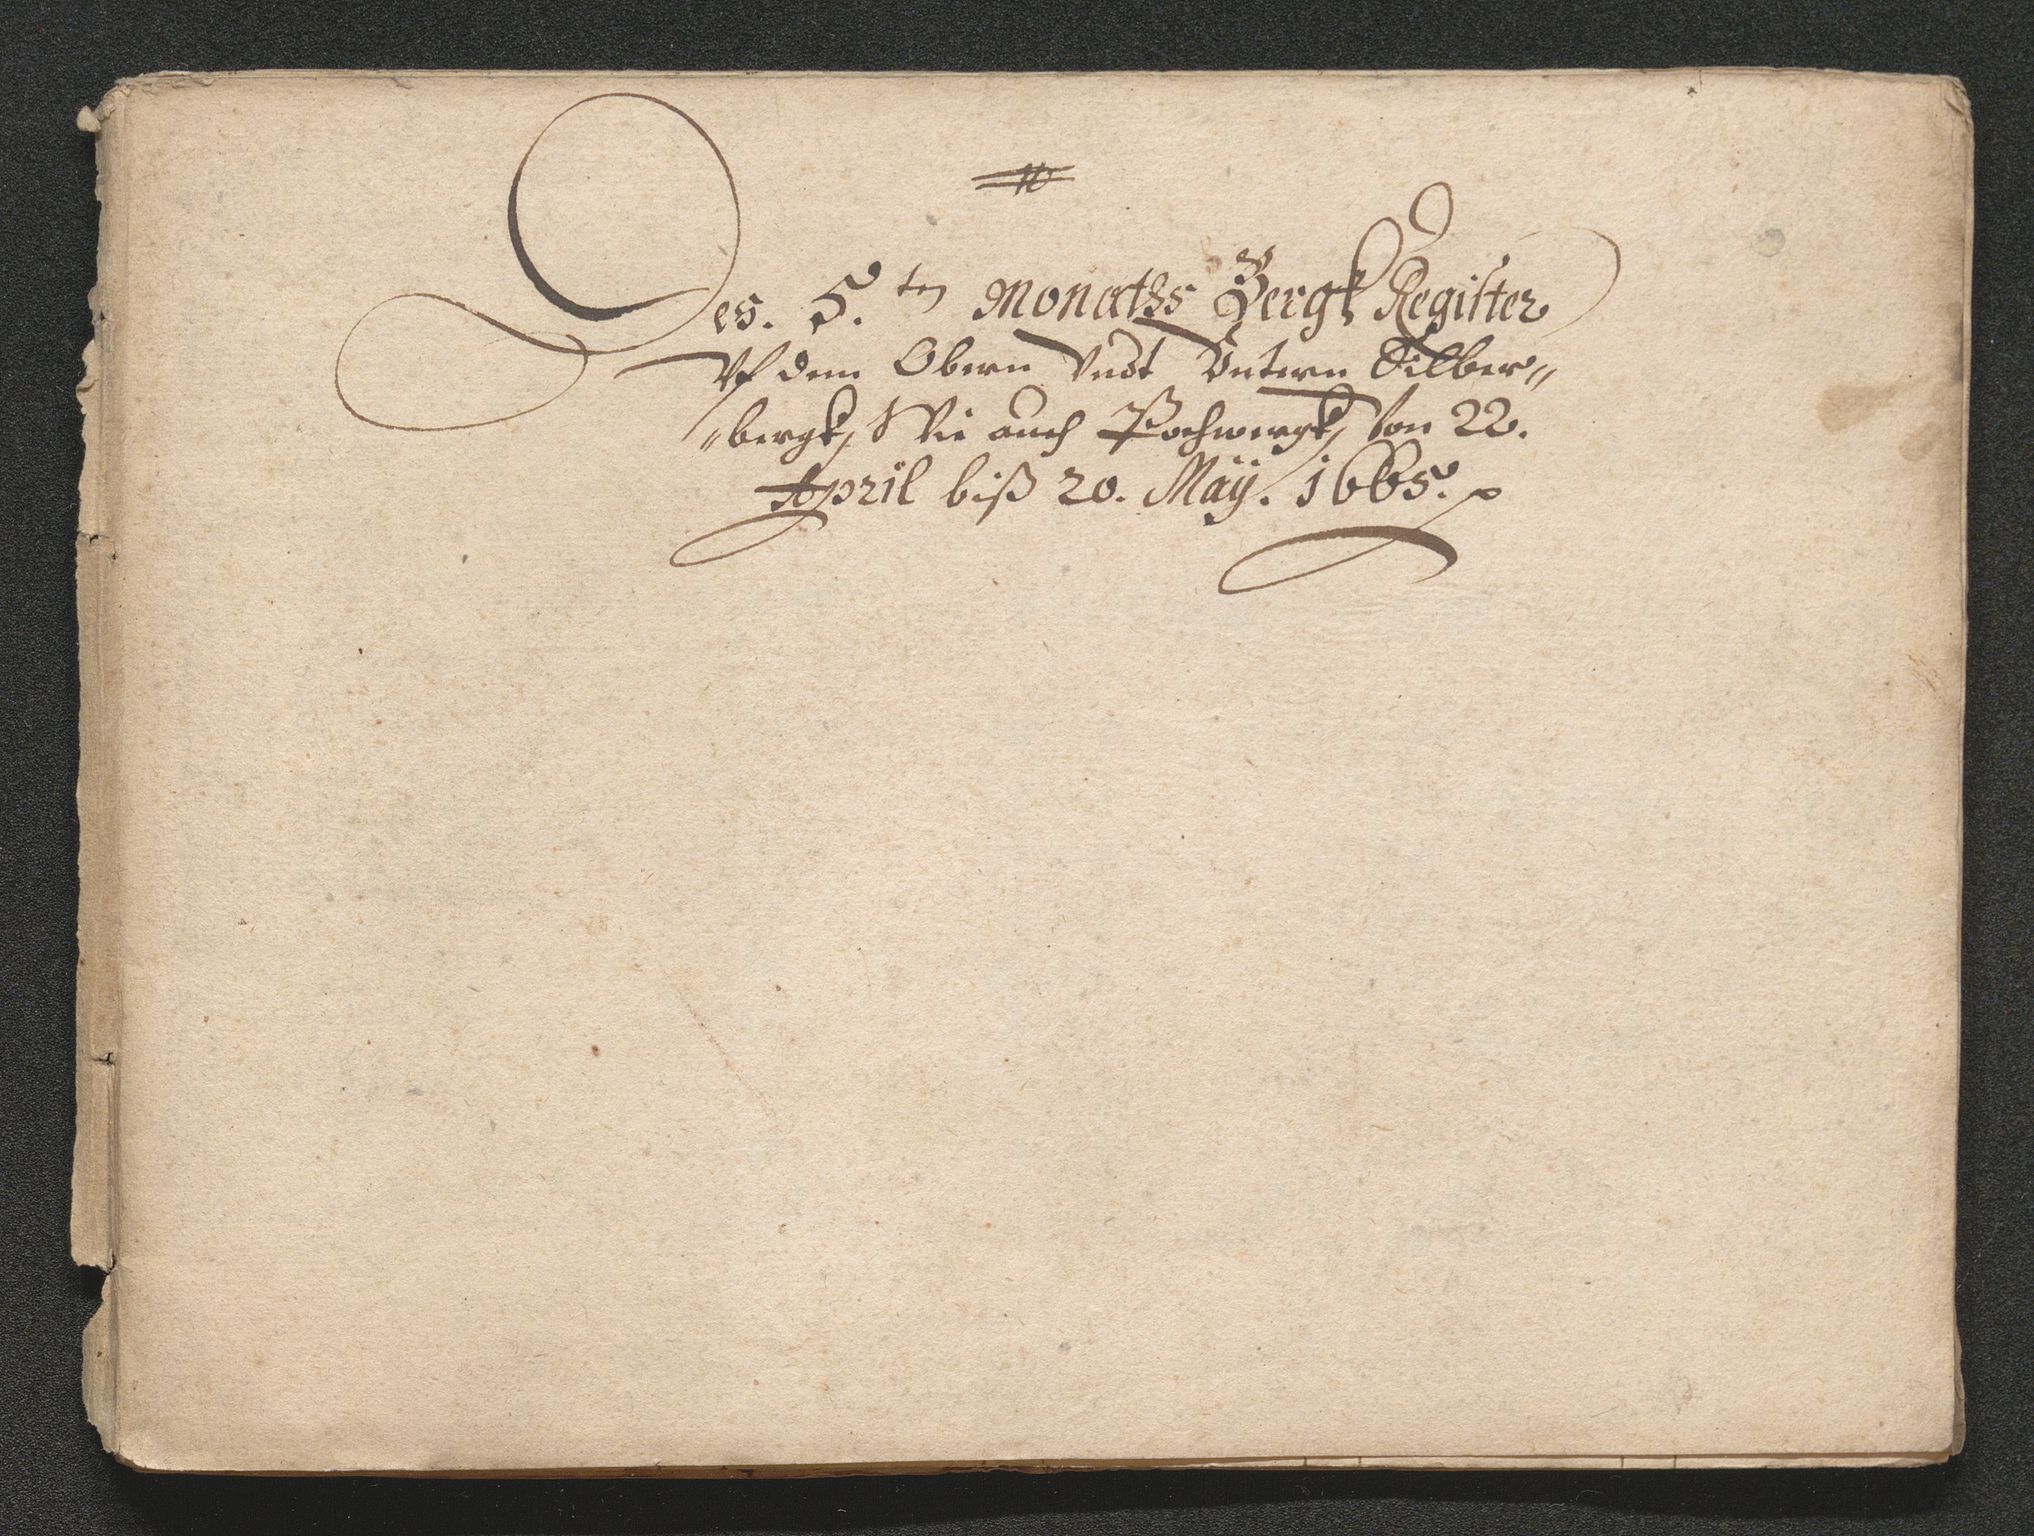 10
Des. 5.ten Monaths Bergk Register
Vf dem Obern Vndt Vntern Silber〃
〃bergk, Wie auch Pochwergk, Von 22.
April biß 20. Maÿ. 1665.